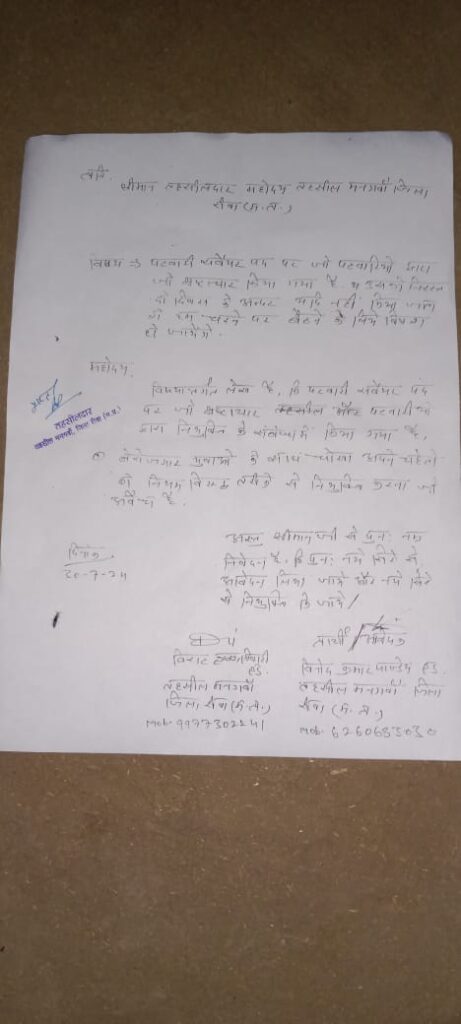 प्रति,
श्रीमान तहसीलदार महोदय तहसील मनगवाँ जिला
रीवा (म.प्र.)
विषय :- पटवारी सर्वेयर पद पर जो पटवारियो द्वारा
जो भ्रष्टाचार किया गया है
दो दिवस के अन्दर यदि नही किया जाता
तो हम धरने पर बैठने के लिये विवश
हो जायेंगे.
महोदय,
विषयान्तर्गत लेख है, कि पटवारी सर्वेयर पद
पर जो भ्रष्टाचार तहसील पटवारी
द्वारा नियुक्ति के संबंध में किया गया है,
बेरोजगार युवाओ के साथ धोखा अपने चहेतो
नियम विरूद्ध तरीके से नियुक्ति करना जो
अवैध है.
तहसीलदार
तहसील मनगवाँ, जिला रीवा (म.प्र.)
अतः श्रीमान जी से पुनः नम्र
निवेदन है, कि पुनः नये सिरे से
आवेदन लिया जाये और नये सिरे
से नियुक्ति कि जाये।
दिनांक
20-7-24
प्रार्थी आवेदक
विराट
तहसील मनगवाँ
जिला रीवा (म.प्र.)
विनोद कुमार पाण्डेय
तहसील मनगवाँ जिला
रीवा (म.प्र.)
mob. 6260653030